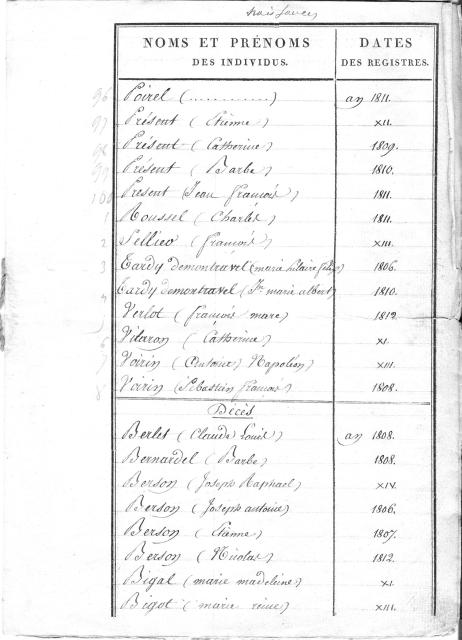 naissances
NOMS ET PRÉNOMS DATES
DES INDIVIDUS. DES REGISTRES.
96 Poirel (............) an 1811.
97 Présent (Etienne) XII.
98 Présent (Catherine) 1809.
99 Présent (Barbe) 1810.
100 Présent (Jean françois) 1811.
1 Roussel (Charles) 1811.
2 (françois) XIII.
3 Tardy demontravel (marie hilaire) 1806.
4 Tardy demontravel (Jn marie albert) 1810.
5 Verlot (françois marc) 1812
6 (Catherine) XI.
7 Voirin (Antoine) Napoléon) XIII.
8 Voirin (Sébastien françois) 1808.
Décès
Berlet (Claude Louis) an 1808.
Bernardel (Barbe) 1808.
Berson (Joseph Raphael) XIV.
Berson (Joseph antoine) 1806.
Berson (Etienne) 1807.
Berson (Nicolas) 1812.
Bigal (marie madeleine) XI.
Bigot (marie reine) XIII.